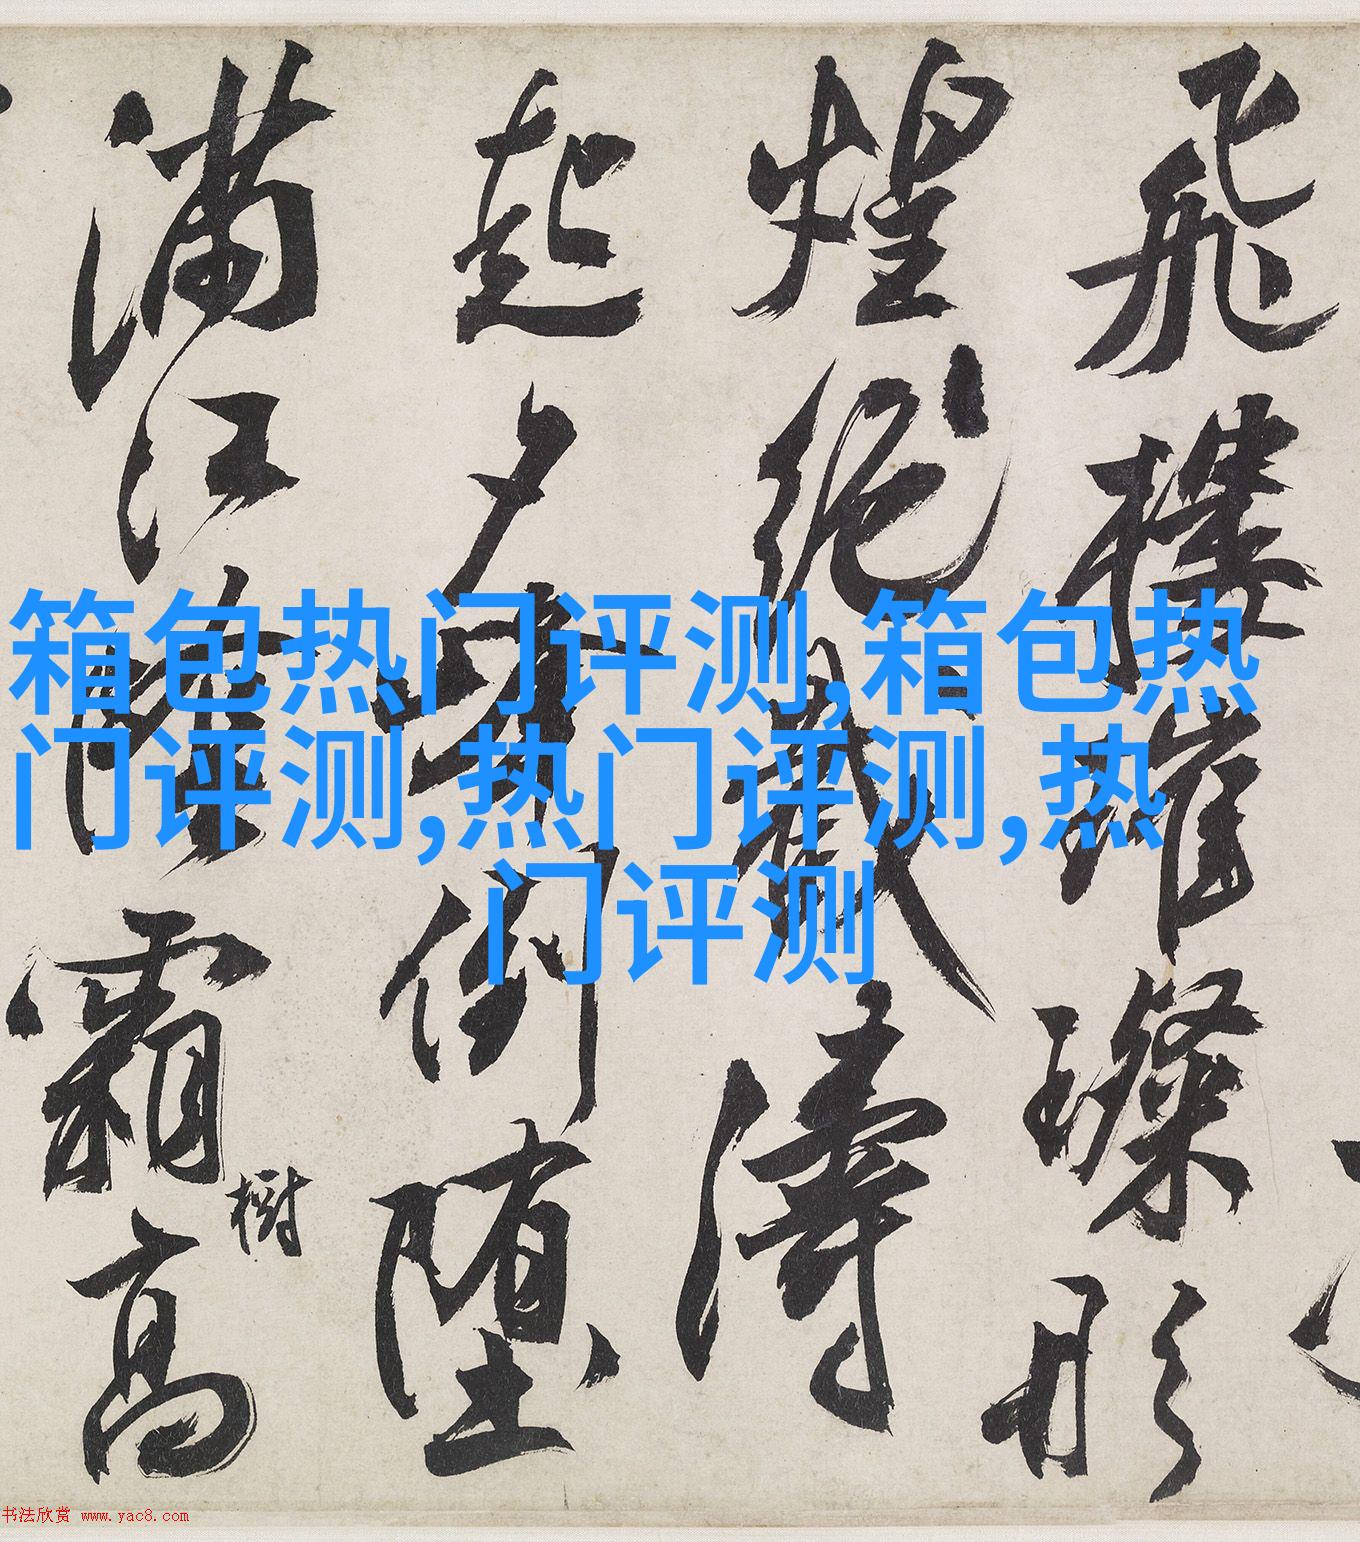 飛樓璀璨形
煌絶濤
起夕倒墮
滿江霜高
樹
箱包热门评测,箱包热
门评测,热门评测,热
门评测
书法欣赏 www.yac8.com